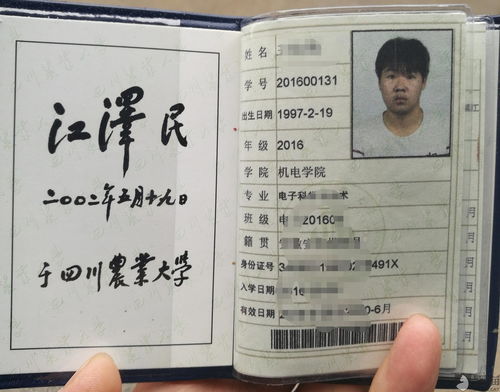 江澤民
二〇〇二年五月十九日
于四川農業大學
姓名
学号 201600131
出生日期 1997-2-19
年级 2016
学院 机电学院
专业 电子科
班级 201600
籍贯
身份证号 491X
入学日期
有效日期 0-6月